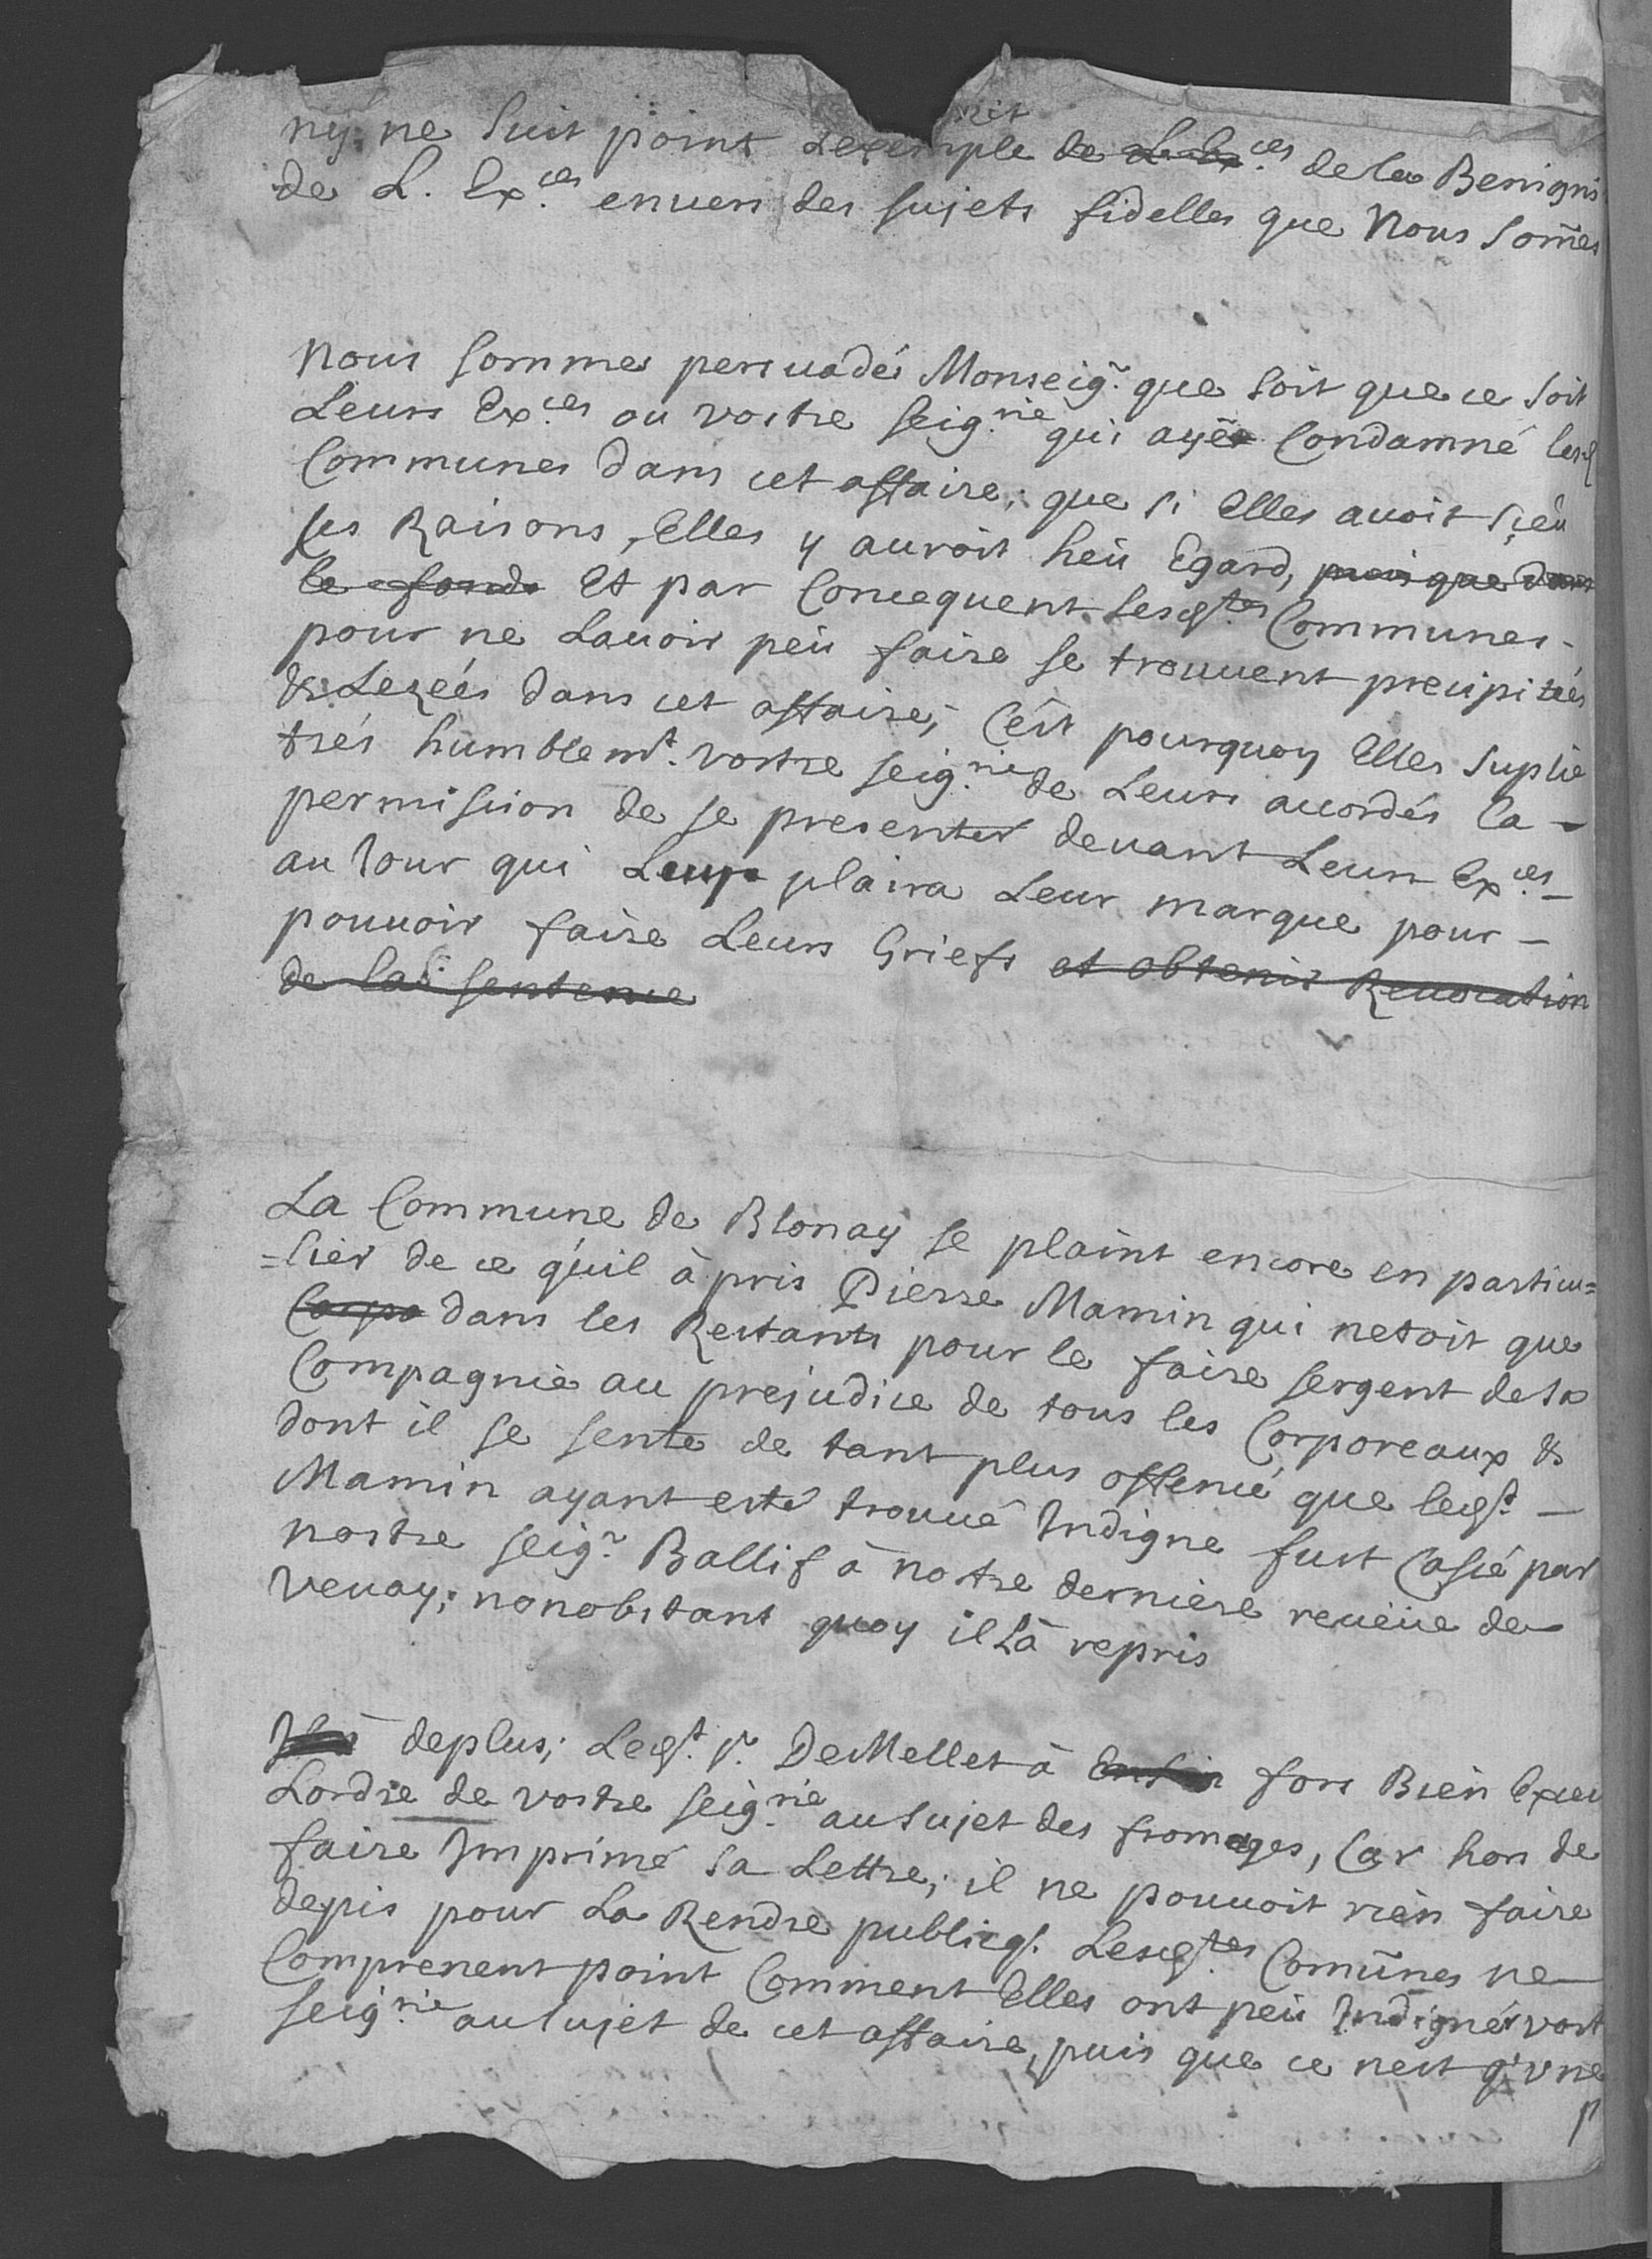 ny ne suit point Lexemple de L. Ex.ces de la Benigni
de L. Ex.ces envers des sujets fidelles que Nous som̃es
Nous sommes persuadés Monseig.r que soit que ce soit
Leurs Ex.ces ou vostre seig.rie qui ayẽ Condamné lesd
Communes dans cet affaire; que si Elles avoit sçeu
ses Raisons, Elles y auroit heü Egard, puis que dans
le fonds Et par Concequent lesd.tes Communes
pour ne Lavoir peü faire se trouvent precipitées
& Lezées dans cet affaire; C'est pourquoy Elles suplie
trés humblem.t vostre seig.rie de Leurs accordés la
permission de se presenter devant Leurs Ex.ces
au Jour qui Leur plaira Leur marque pour
pouvoir faire Leurs Griefs et obtenir Revocation
de lad. sentence
La Commune de Blonay se plaint encore en particu=
=lier de ce qu'il à pris Pierre Mamin qui netoit que
Corpo dans les Restants pour le faire sergent de sa
Compagnie au prejudice de tous les Corporeaux &
dont il se sente de tant plus offencé que led.t
Mamin ayant esté trouvé Indigne fust Cassé par
nostre seig.r Ballif à nostre derniere reveüe de
Vevay; nonobstant quoy il Là repris
Il à deplus; Led.t s.r DeMellet à Enfin fors Bien Execu
Lordre de vostre seig.rie au sujet des fromages, Car hors de
faire Imprimé sa Lettre; il ne pouvoit rien faire
depis pour La Rendre publicq. Lesd.tes Com̃unes ne
Comprenent point Comment Elles ont peü Indigner vost
seig.rie au sujet de cet affaire, puis que ce nest q'une
p